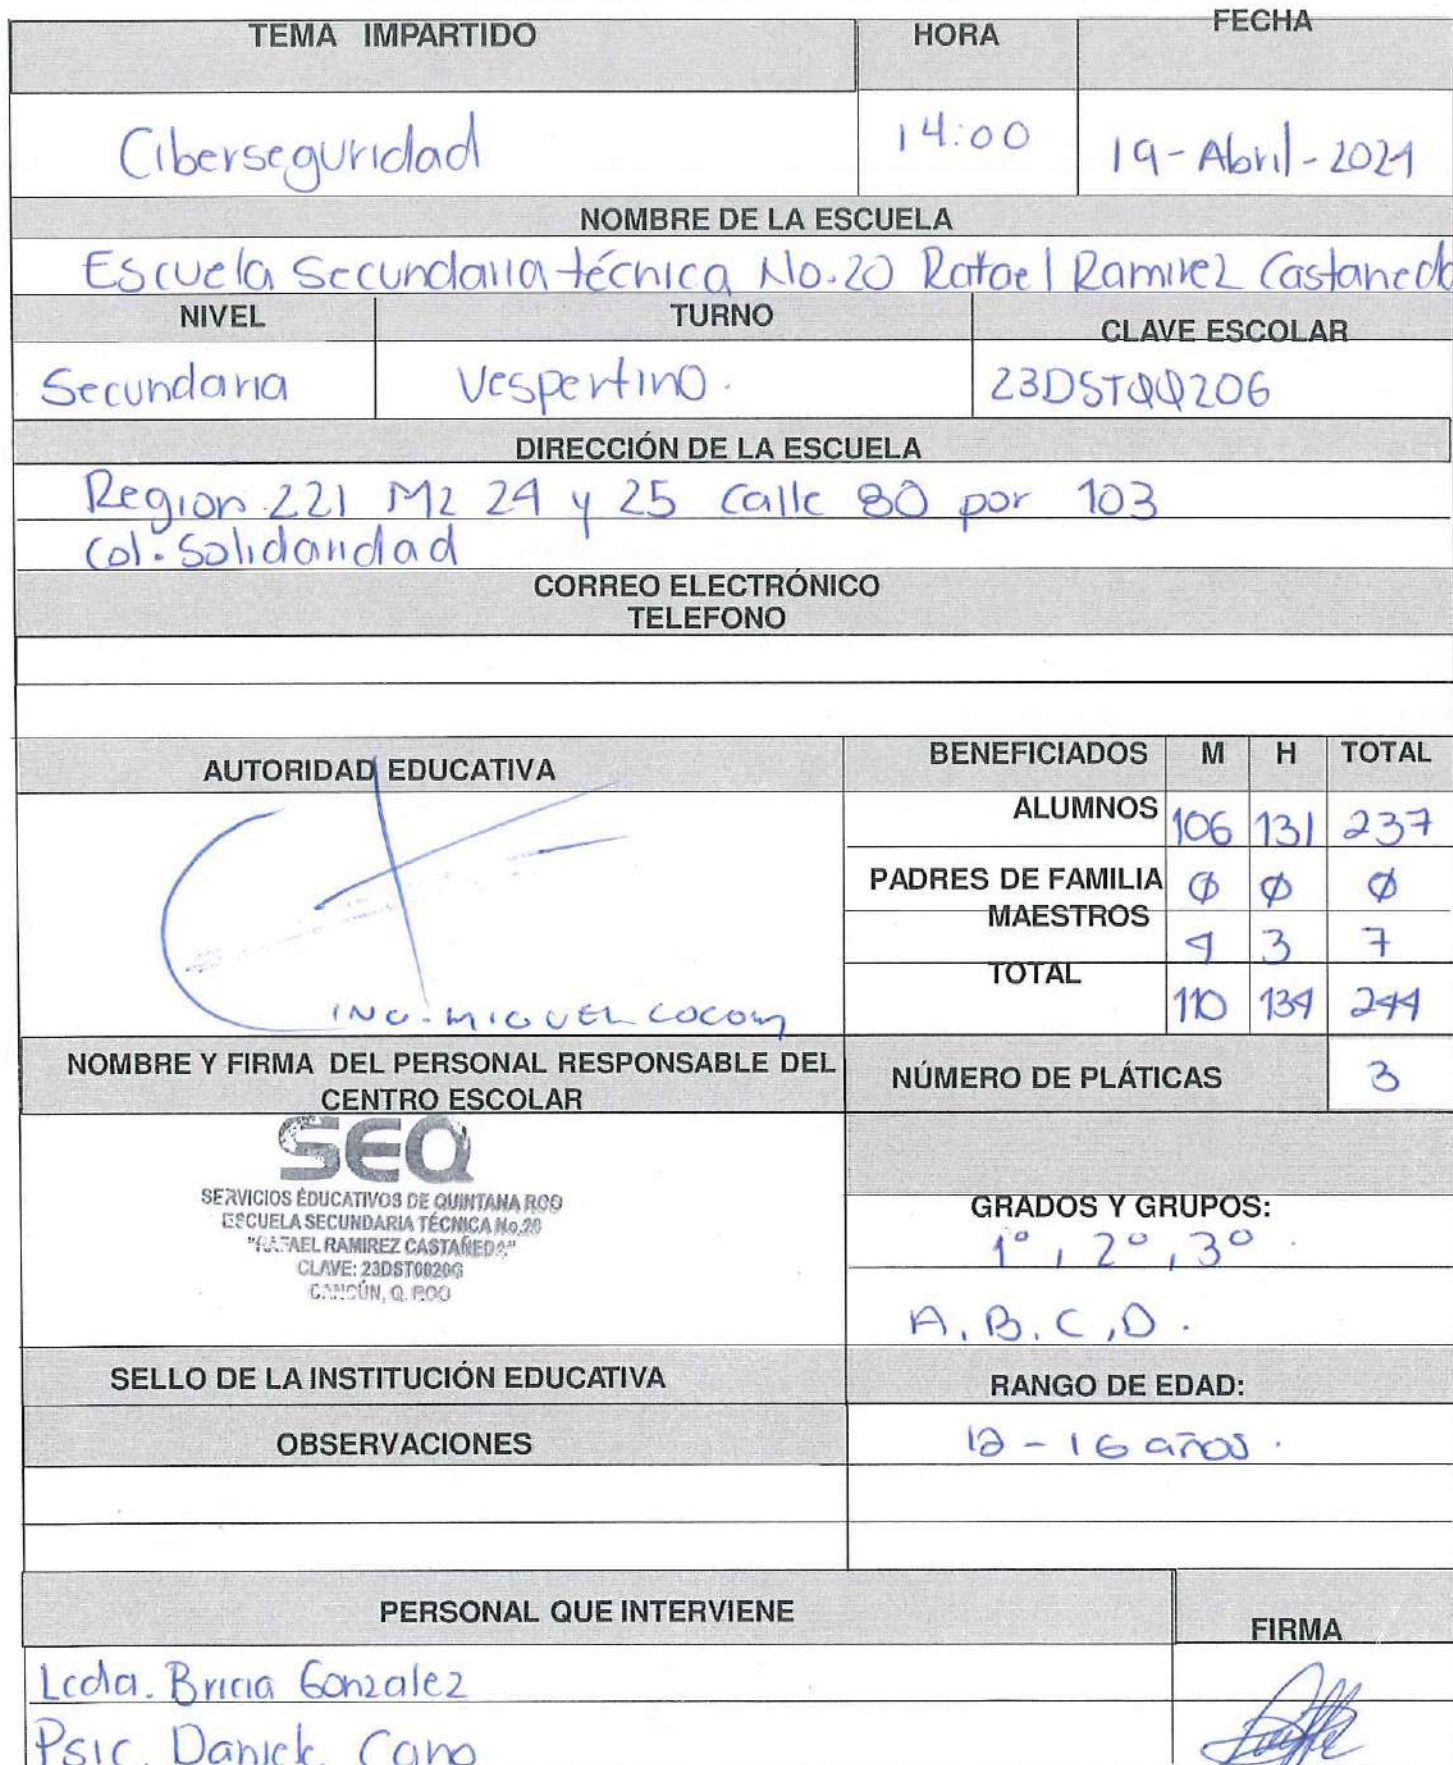 TEMA IMPARTIDO HORA FECHA
Ciberseguridad 14:00 19-Abril-2024
NOMBRE DE LA ESCUELA
Escuela Secundaria técnica No.20 Rafael Ramirez Castaneda
NIVEL TURNO CLAVE ESCOLAR
Secundaria Vespertino. 23DSTØØ20G
DIRECCIÓN DE LA ESCUELA
Region 221 Mz 24 y 25 calle 80 por 103
Col. Solidaridad
CORREO ELECTRÓNICO
TELEFONO
AUTORIDAD EDUCATIVA BENEFICIADOS M H TOTAL
ALUMNOS 106 131 237
PADRES DE FAMILIA Ø Ø Ø
MAESTROS 4 3 7
TOTAL 110 134 244
ING. MIGUEL COCOM
NOMBRE Y FIRMA DEL PERSONAL RESPONSABLE DEL
CENTRO ESCOLAR
NÚMERO DE PLÁTICAS 3
SEQ
SERVICIOS EDUCATIVOS DE QUINTANA ROO
ESCUELA SECUNDARIA TÉCNICA No.20
"RAFAEL RAMIREZ CASTAÑEDA"
CLAVE: 23DST0020G
CANCÚN, Q. ROO
GRADOS Y GRUPOS:
1°, 2°, 3°.
A, B, C, D.
SELLO DE LA INSTITUCIÓN EDUCATIVA RANGO DE EDAD:
OBSERVACIONES 12 - 16 años.
PERSONAL QUE INTERVIENE FIRMA
Lcda. Bricia Gonzalez
Psic. Cano